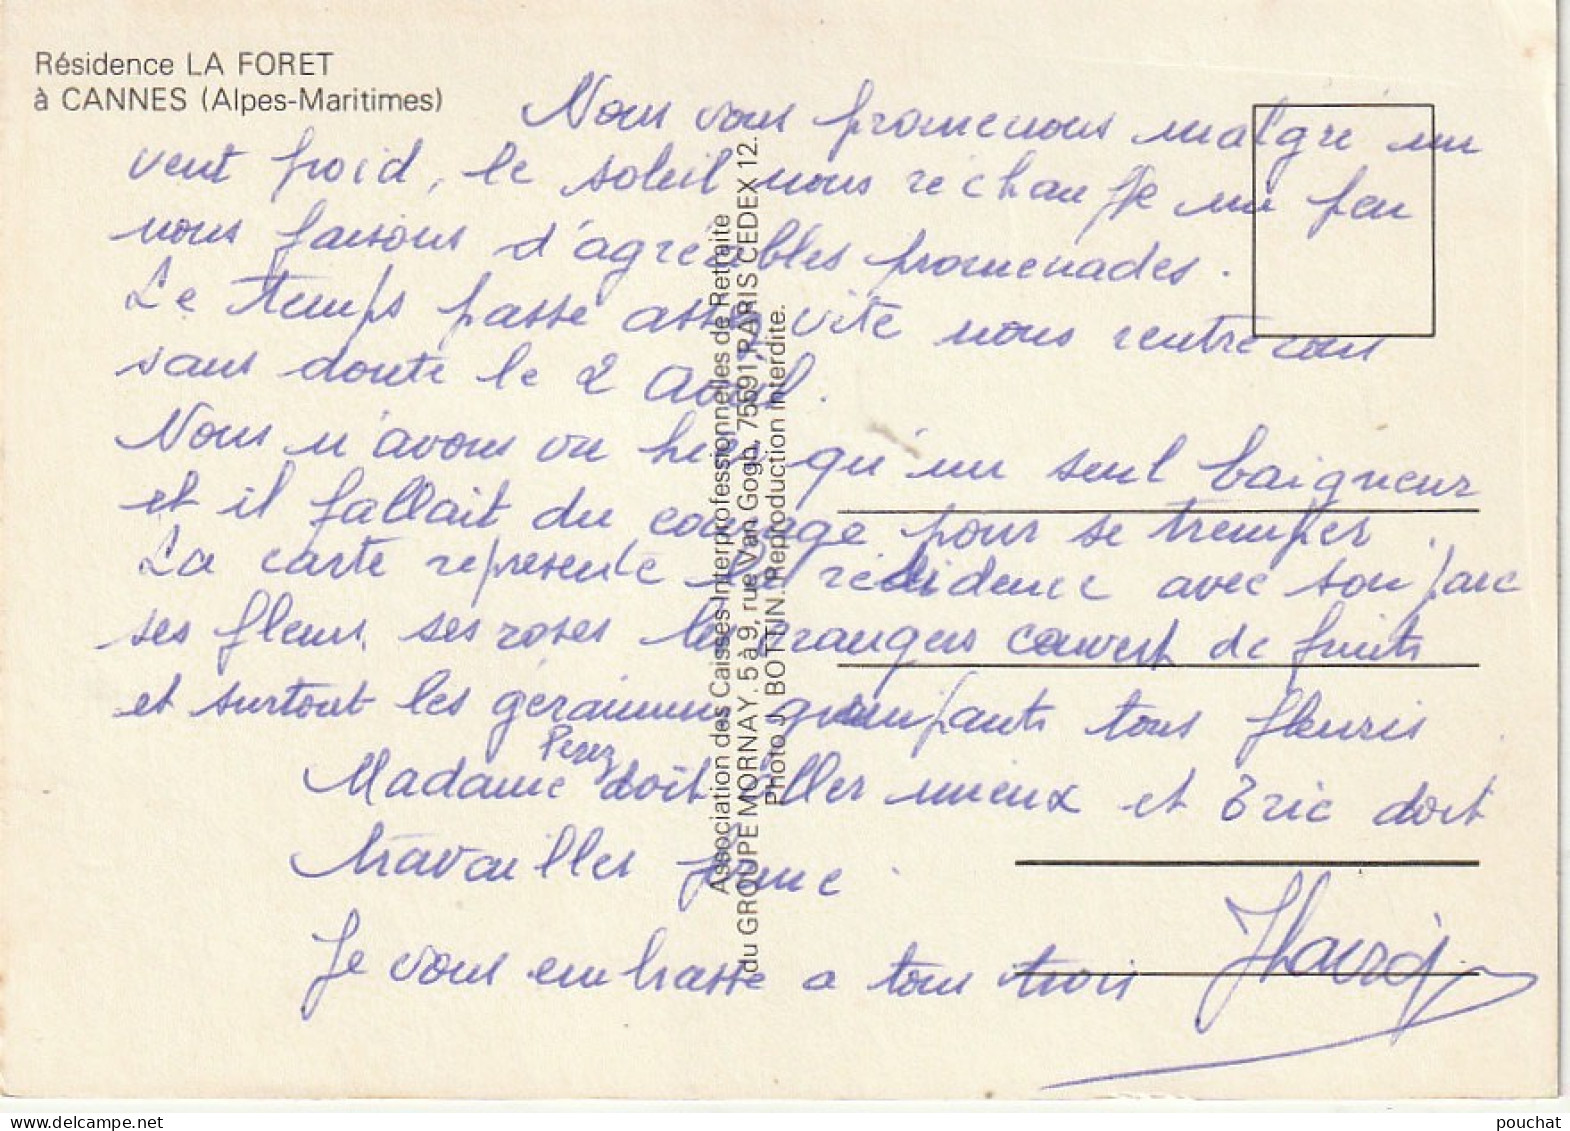 Résidence LA FORET
à CANNES (Alpes-Maritimes)
Nous vous promenons malgré un
vent froid, le soleil nous réchauffe un peu
nous faisons d'agréables promenades.
Le temps passe assez vite nous rentrerons
sans doute le 2 Avril.
Nous n'avons vu hier qu'un seul baigneur
et il fallait du courage pour se tremper.
La carte représente la résidence avec son parc
ses fleurs, ses roses les orangers couvert de fruits
et surtout les géraniums grimpants tous fleuris
Madame Perez doit aller mieux et Eric doit
travailler ferme.
Je vous embrasse a tous trois
Association des Caisses Interprofessionnelles de Retraite
du GROUPE MORNAY. 5 à 9, rue Van Gogh, 75591 PARIS CEDEX 12.
Photo J. BOTTIN. Reproduction interdite.
www.delcampe.net
pouchat